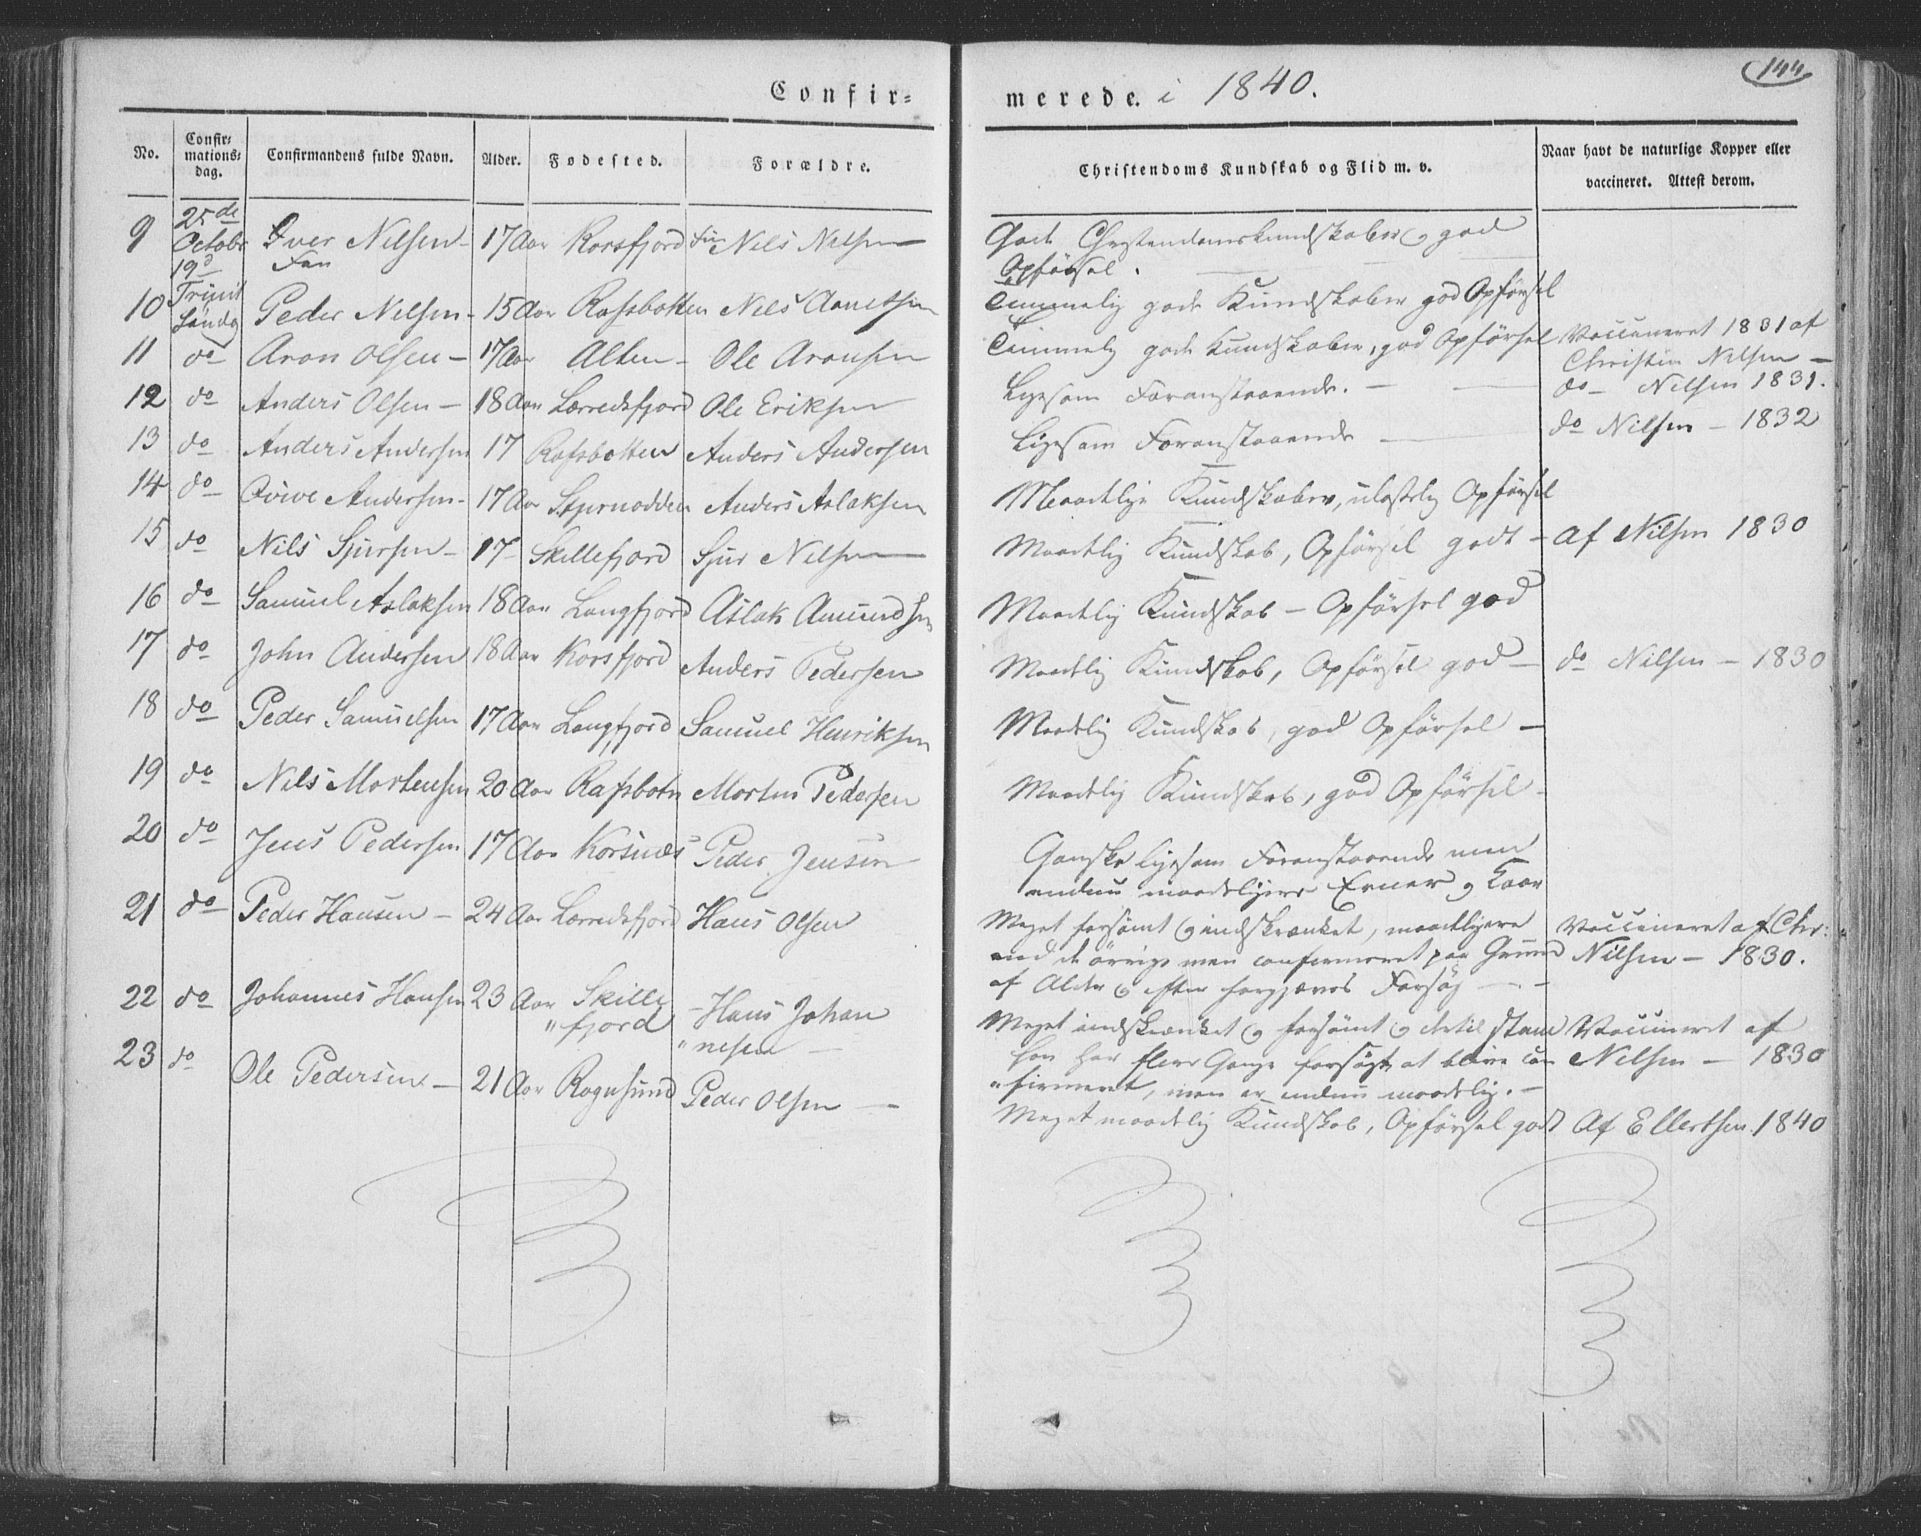 Confir=
merede. i 1840.
144
No.
Confir=
mations=
dag.
Confirmandens fulde Navn.
Alder.
Fødested.
Forældre.
Christendoms Kundskab og Flid m. v.
Naar havt de naturlige Kopper eller
vaccineret. Attest derom.
9 25de Octobr Iver Nilsen 17 Aar Korsfjord Nils Nilsen Gode Christendomskundskaber og god
19d Fan Opførsel.
10 Trinit Søndg Peder Nilsen 15 Aar Rafsbotten Nils Temmelig gode Kundskaber god Opførsel
11 do Aron Olsen 17 Aar Alten Ole Aronsen Temmelig gode Kundskaber, god Opførsel Vaccineret 1831 af
Christin Nilsen
12 do Anders Olsen 18 Aar Lerredsfjord Ole Eriksen Ligesom Foranstaaende. do Nilsen 1831.
13 do Anders Andersen 17 Rafsbotten Anders Andersen Ligesom Foranstaaende do Nilsen 1832
14 do Andersen 17 Aar Stjernodden Anders Aslaksen Maadelige Kundskaber, ulastelig Opførsel
15 do Nils Sjursen 17 Skillefjord Sjur Nilsen Maadelig Kundskab, Opførsel godt Af Nilsen 1830
16 do Samuel Aslaksen 18 Aar Langfjord Aslak Amundsen Maadelig Kundskab Opførsel god
17 do John Andersen 18 Aar Korsfjord Anders Pedersen Maadelig Kundskab, Opførsel god do Nilsen 1830
18 do Peder Samuelsen 17 Aar Langfjord Samuel Henriksen Maadelig Kundskab, god Opførsel
19 do Nils Mortensen 20 Aar Rafsbotn Morten Pedersen Maadelig Kundskab, god Opførsel
20 do Jens Pedersen 17 Aar Korsnæs Peder Jensen Ganske ligesom Foranstaaende men
endnu maadeligere Evner og Kaar
21 do Peder Hansen 24 Aar Lerredsfjord Hans Olsen Meget forsømt og indskrænket, maadeligere Vaccineret af Chr:
end de øvrige men confirmeret paa Grund Nilsen 1830.
af Alder og efter forgjæves Forsøg
22 do Johannes Hansen 23 Aar Skille Hans Johan Meget indskrænket og forsømt og dertil stam Vaccineret af
"fjord "nesen han har flere Gange forsøgt at blive con Nilsen 1830
"firmeret, men er endnu maadelig.
23 do Ole Pedersen 21 Aar Rognsund Peder Olsen Meget maadelig Kundskab, Opførsel god Af Ellertsen 1840